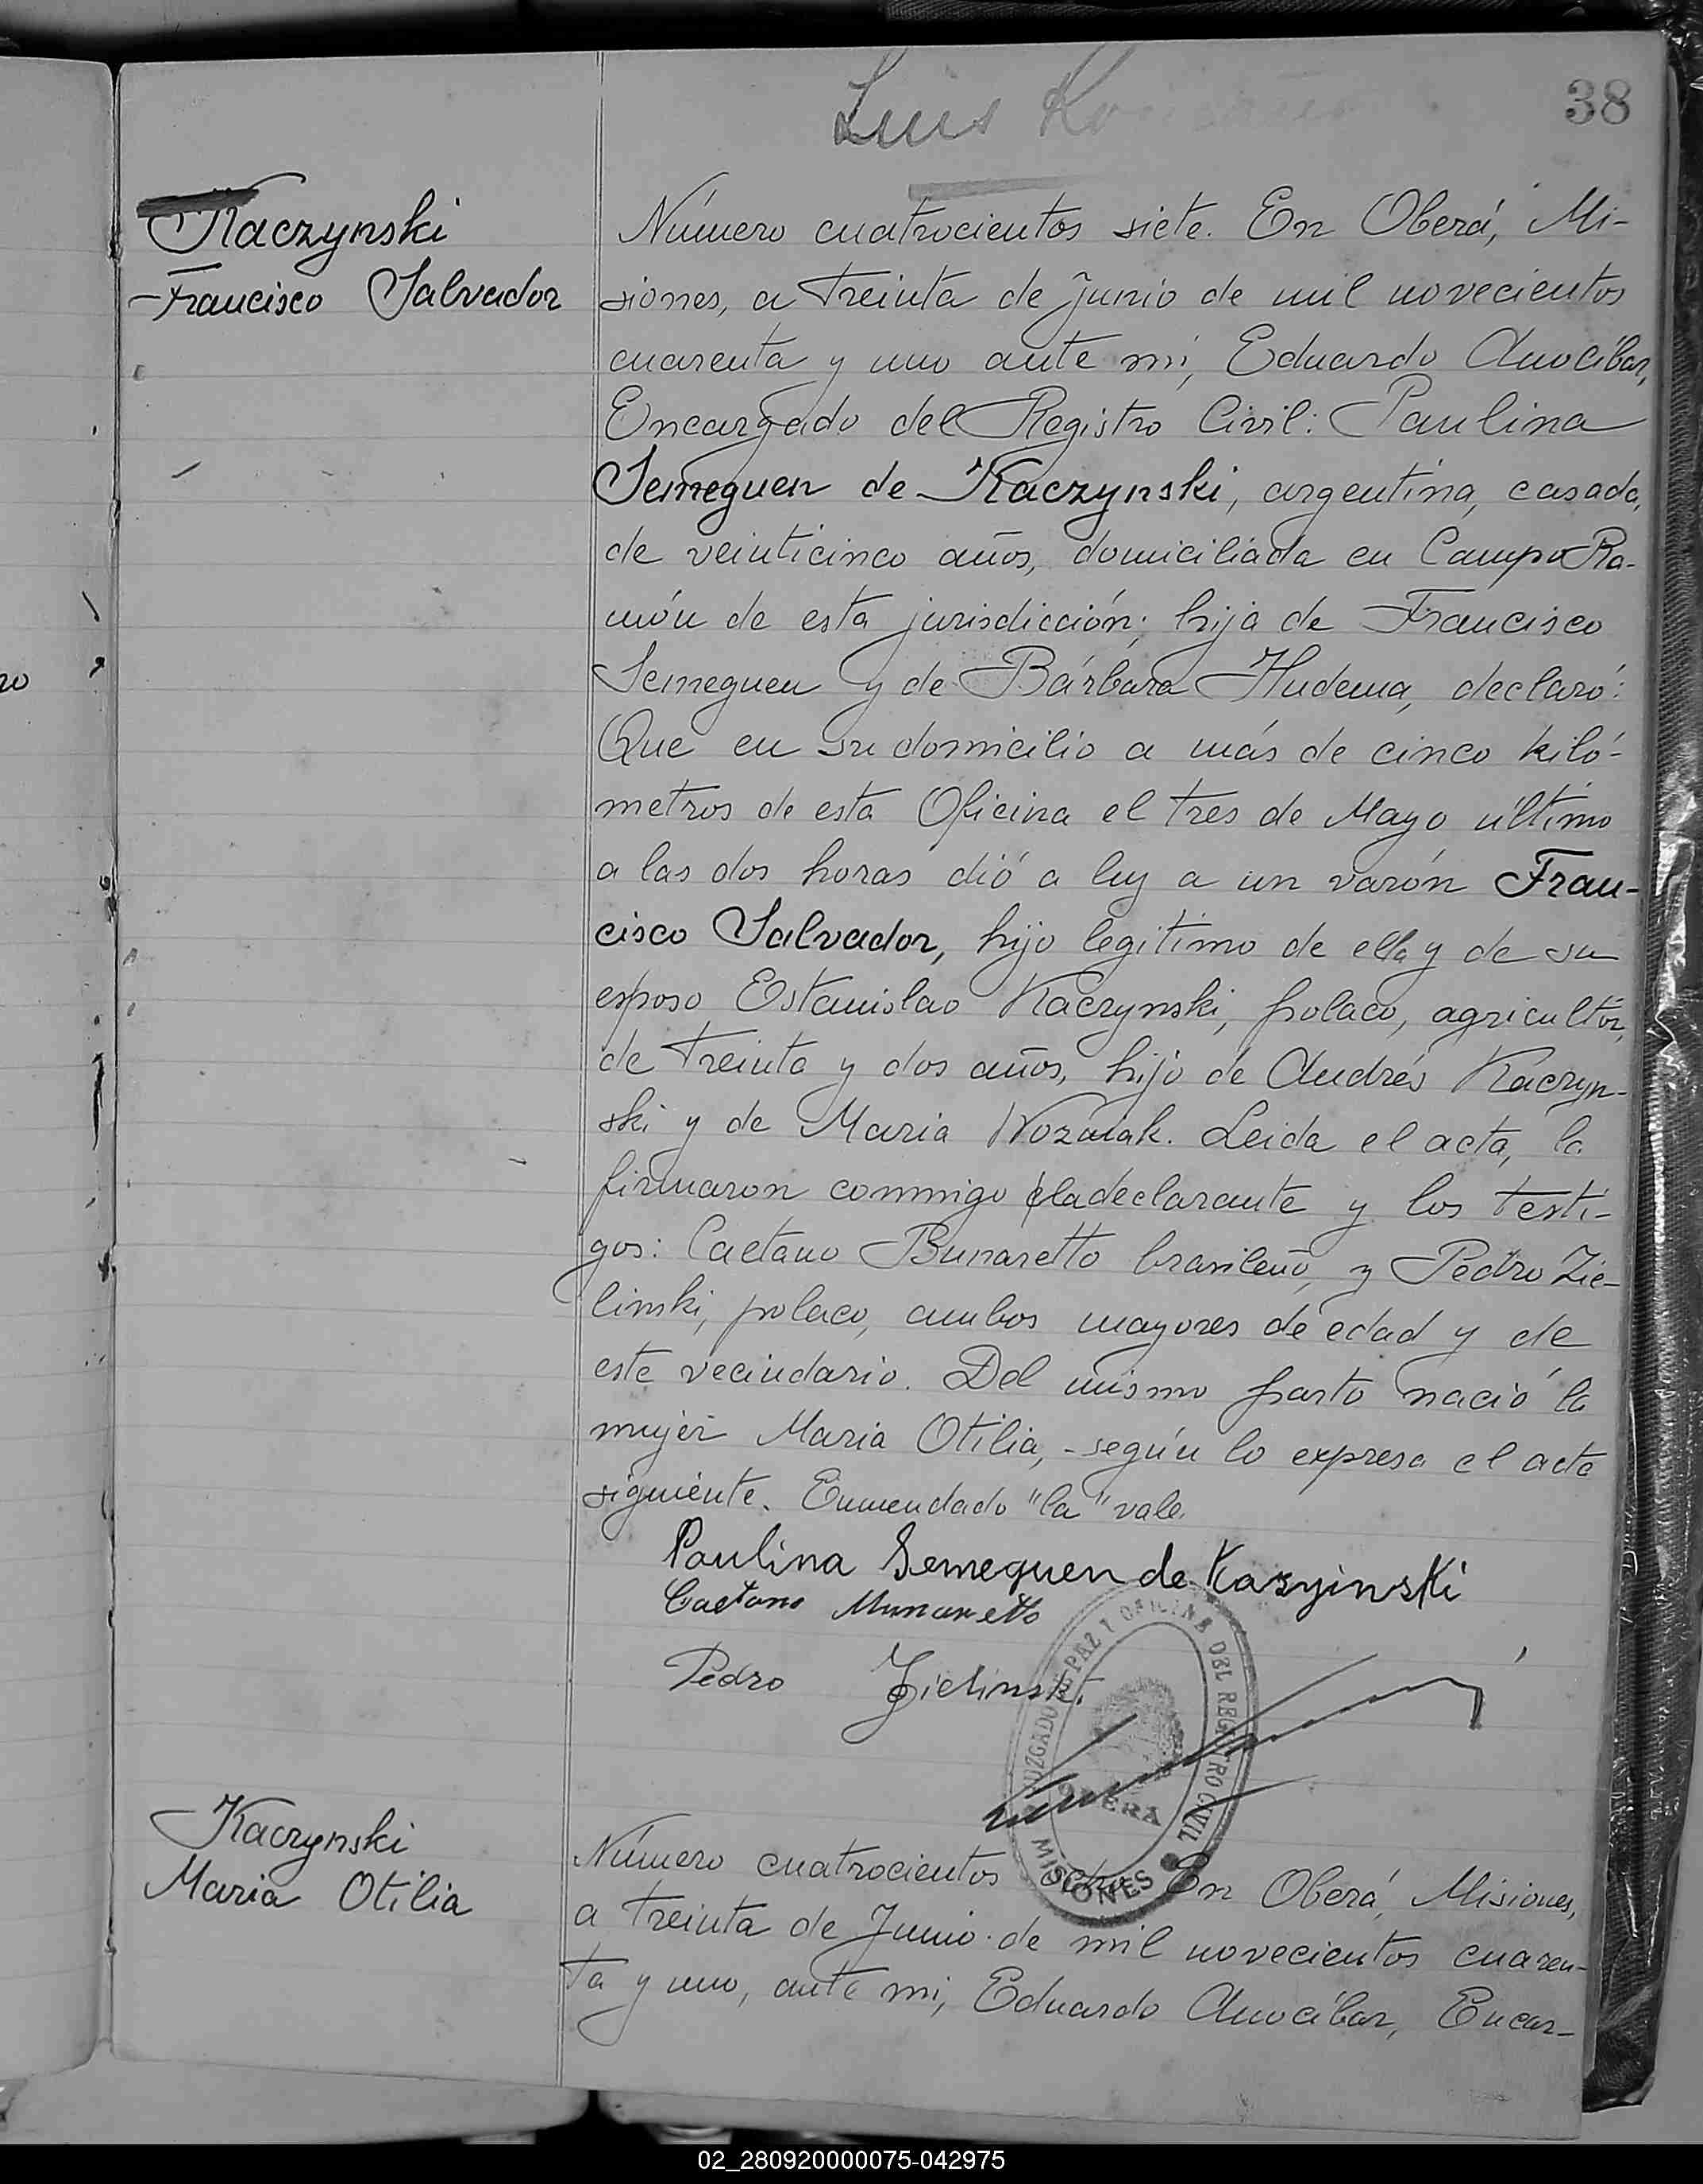 Luis
38
Kaczynski
Francisco Salvador
Número cuatrocientos siete. En Oberá, Mi-
siones, a treinta de Junio de mil novecientos
cuarenta y uno ante mi, Eduardo Anocíbar,
Encargado del Registro Civil: Paulina
Semeguen de Kaczynski, argentina, casada,
de veinticinco años, domiciliada en Campo Ra-
món de esta jurisdicción; hija de Francisco
Semeguen y de Bárbara Hudema, declaró:
Que en su domicilio a más de cinco kiló-
metros de esta Oficina el tres de Mayo último
a las dos horas dió a luz a un varón Fran-
cisco Salvador, hijo legitimo de ella y de su
esposo Estanislao Kaczynski, polaco, agricultor,
de treinta y dos años, hijo de Andrés Kaczyn-
ski y de Maria Wozniak. Leida el acta, la
firmaron conmigo la declarante y los testi-
gos: Caetano Bunaretto brasileño, y Pedro Zie-
linski, polaco, ambos mayores de edad y de
este vecindario. Del mismo parto nació la
mujer Maria Otilia, -según lo expresa el acta
siguiente. Enmendado "la" vale.
Paulina Semeguen de Kasyinski
Caetano Munaretto
Pedro Zielinski
JUZGADO DE PAZ Y OFICINA DEL REGISTRO CIVIL
OBERA
MISIONES
Kaczynski
Maria Otilia
Número cuatrocientos ocho En Oberá, Misiones,
a treinta de Junio de mil novecientos cuaren-
ta y uno, ante mi, Eduardo Anocíbar, Encar-
no
02_280920000075-042975